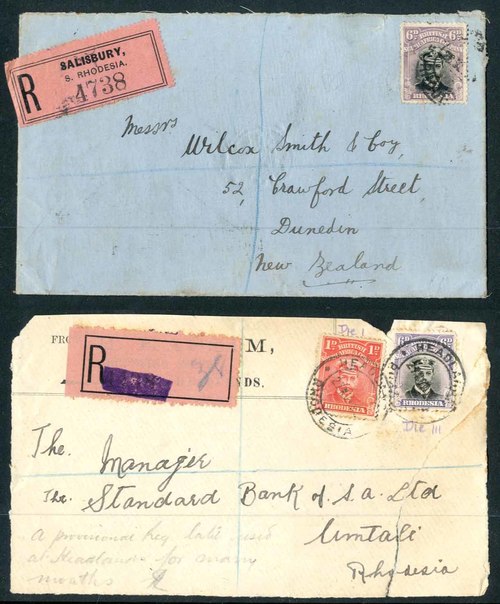 SALISBURY,
S. RHODESIA.
R
4738
6D BRITISH 6D
SOUTH AFRICA COMPANY
RHODESIA
Messrs
Wilcox Smith & Coy,
52, Crawford Street,
Dunedin
New Zealand
FRO
M,
NDS.
R
Die I
1D BRITISH 1D
RHODESIA
HE
RHODESIA
6D 6D
RHODESIA
HEADLAN
Die III
The Manager
The Standard Bank of S.a. Ltd
Umtali
Rhodesia
a provisional Reg label used
at Headlands for many
months